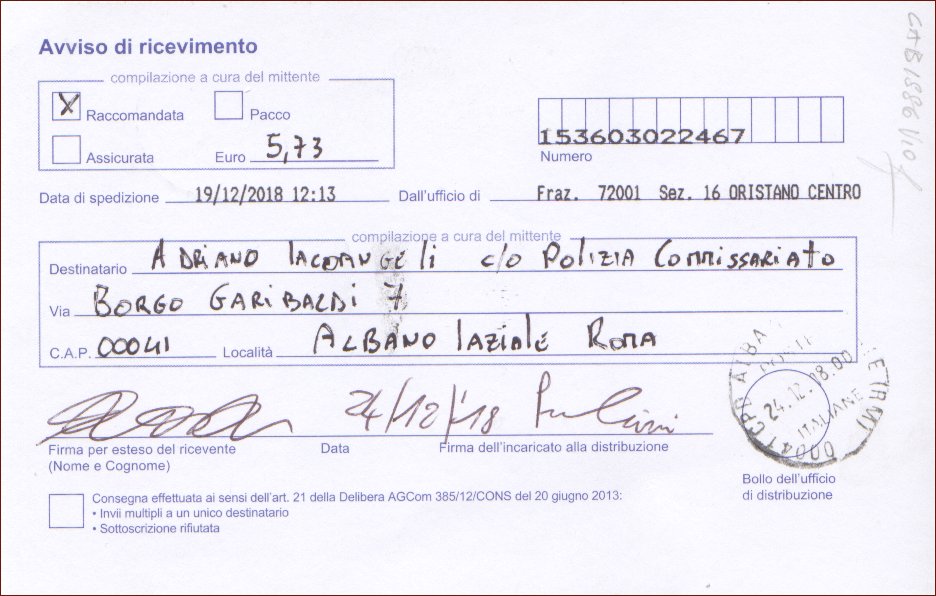 Avviso di ricevimento
compilazione a cura del mittente
X Raccomandata Pacco
Assicurata Euro 5,73
153603022467
Numero
Data di spedizione 19/12/2018 12:13 Dall'ufficio di Fraz. 72001 Sez. 16 ORISTANO CENTRO
compilazione a cura del mittente
Destinatario ADRIANO IACOANGELI c/o POLIZIA COMMISSARIATO
Via BORGO GARIBALDI 7
C.A.P. 00041 Località ALBANO LAZIALE ROMA
24/12/'18
Firma per esteso del ricevente
(Nome e Cognome)
Data
Firma dell'incaricato alla distribuzione
24.12.18.00
POSTE ITALIANE
00041 CPD ALBA
E (RM)
Bollo dell'ufficio
di distribuzione
Consegna effettuata ai sensi dell'art. 21 della Delibera AGCom 385/12/CONS del 20 giugno 2013:
• Invii multipli a un unico destinatario
• Sottoscrizione rifiutata